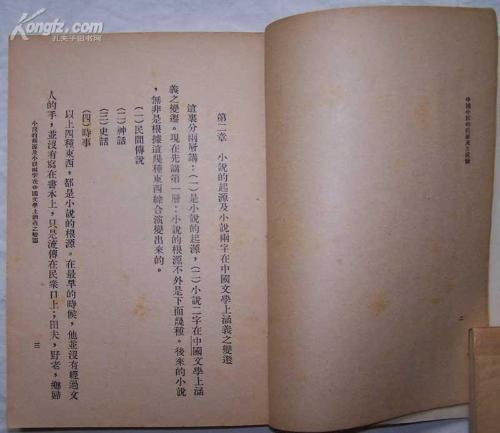 Kongfz.com
孔夫子旧书网
二
第二章 小說的起源及小說兩字在中國文學上涵義之變遷
這裏分兩層講：(一)是小說的起源，(二)小說二字在中國文學上涵
義之變遷。現在先講第一層：小說的根源不外是下面幾種。後來的小說
，無非是根據這幾種東西綜合演變出來的。
(一)民間傳說
(二)神話
(三)史話
(四)時事
以上四種東西，都是小說的根源。在最早的時候，他並沒有經過文
人的手，並沒有寫在書本上，只是流傳在民衆口上；田夫，野老，鄉婦
小說的起源及小說兩字在中國文學上涵義之變遷
三